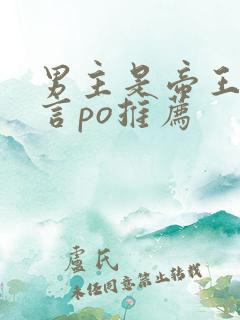 男主是帝王
言po推薦
盧氏
未经同意禁止转载